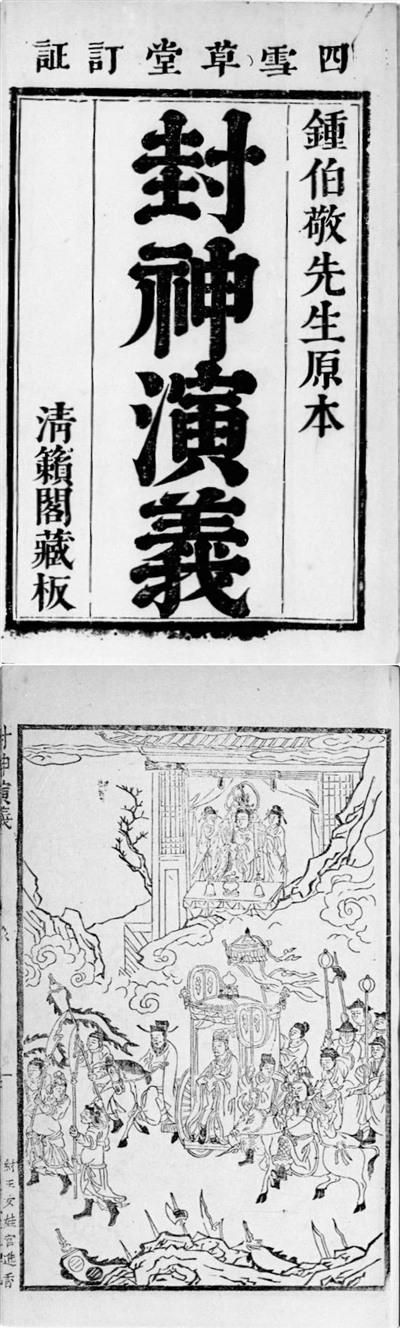 四雪草堂訂証
鍾伯敬先生原本
封神演義
清籟閣藏板
封神演義
一
紂王女媧宮進香